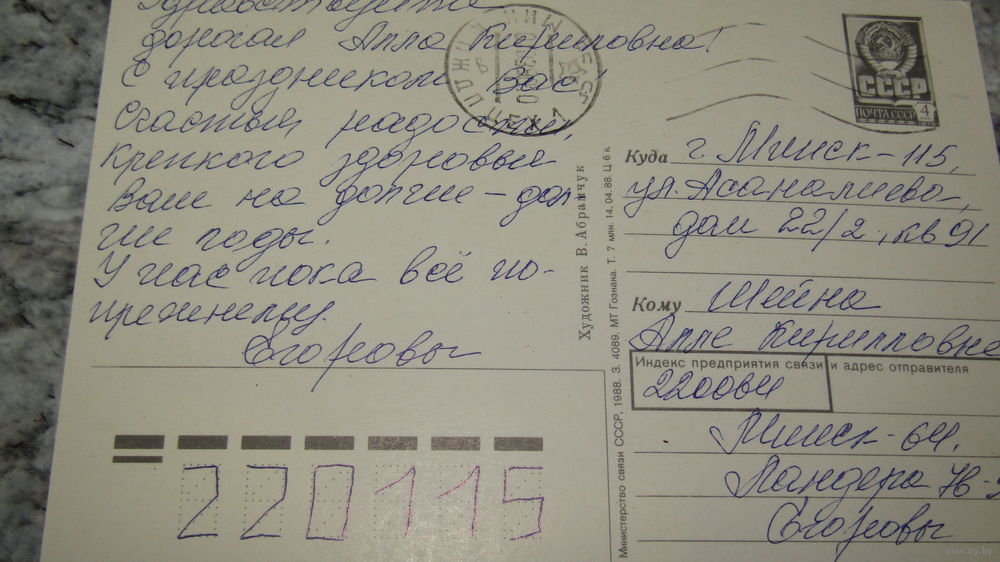 Здравствуйте
дорогая Алла Кирилловна!
С праздником Вас!
Счастья, радости,
крепкого здоровья
Вам на долгие-дол-
гие годы.
У нас пока всё по-
прежнему.
Егоровы
СССР
ПОЧТА СССР
4
Куда г. Минск-115,
ул. Асаналиева,
дом 22/2, кв 91
Кому Шейна
Алле Кирилловне
Индекс предприятия связи и адрес отправителя
220064
Минск-64,
Ландера
Егоровы
220115
Художник В. Абрамчук
Министерство связи СССР, 1988. З. 4089. МТ Гознака. Т. 7 млн. 14.04.88. Ц. 6 к.
www.ay.by